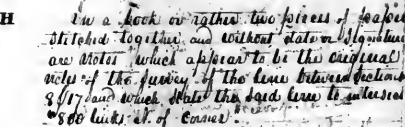 H In a book or rather two pieces of paper
stitched together and without date or signature
are notes which appear to be the original
notes of the survey of the line between Sections
8 & 17 and which states the said line to intersect
"800 links N. of Corner"